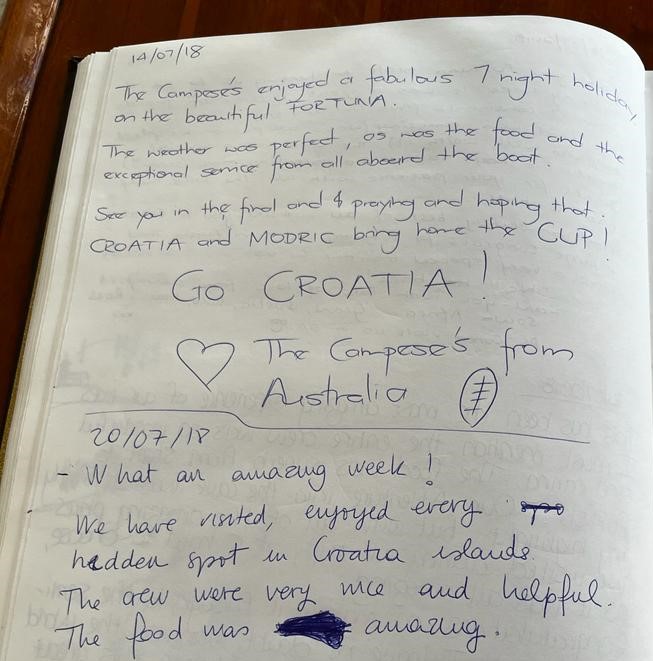 14/07/18
The Campese's enjoyed a fabulous 7 night holiday
on the beautiful FORTUNA.
The weather was perfect, as was the food and the
exceptional service from all aboard the boat.
See you in the final and & praying and hoping that
CROATIA and MODRIC bring home the CUP!
GO CROATIA!
The Campese's from
Australia
20/07/18
- What an amazing week!
We have visited, enjoyed every
hidden spot in Croatia islands.
The crew were very nice and helpful.
The food was amazing.